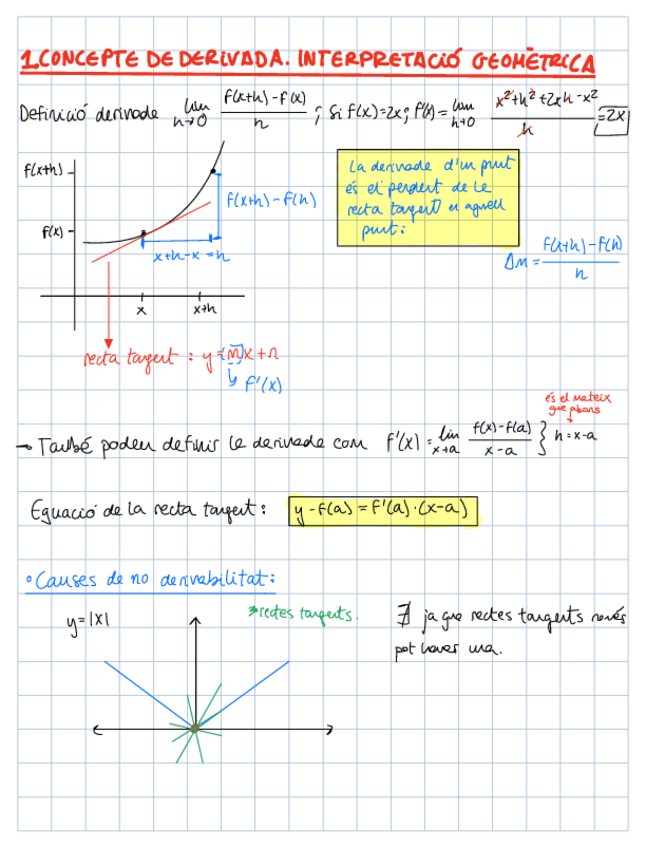 1.CONCEPTE DE DERIVADA. INTERPRETACIÓ GEOMÈTRICA
Definició derivade lim h→0 f(x+h)-f(x) / h ; Si f(x)=2x; f'(x)= lim h→0 x²+h²+2xh-x² / h =2x
f(x+h)
f(x)
f(x+h)-f(h)
x+h-x=h
x
x+h
La derivade d'un punt
és el pendent de le
recta tangent en aquell
punt:
Δm= f(x+h)-f(h) / h
recta tangent: y=mx+n
f'(x)
és el mateix
que abans
→ També podem definir le derivade com f'(x)=lim x→a f(x)-f(a) / x-a } h=x-a
Equació de la recta tangent: y-f(a)=f'(a)·(x-a)
•Causes de no derivabilitat:
y=|x|
rectes tangents.
∄ ja que rectes tangents només
pot haver una.